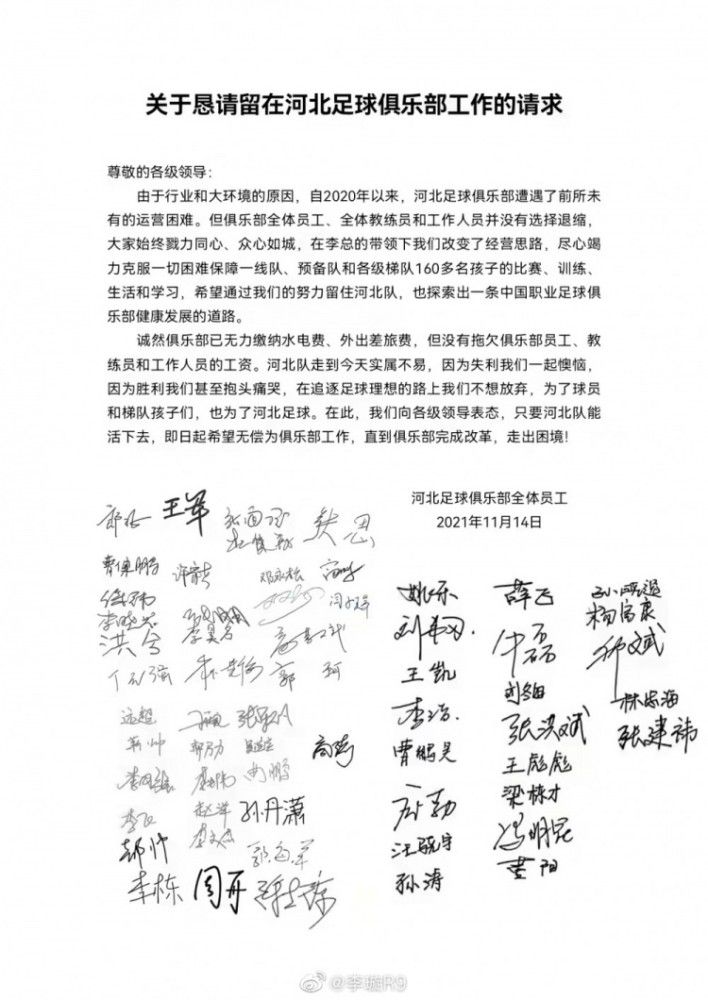 关于恳请留在河北足球俱乐部工作的请求
尊敬的各级领导：
由于行业和大环境的原因，自2020年以来，河北足球俱乐部遭遇了前所未
有的运营困难。但俱乐部全体员工、全体教练员和工作人员并没有选择退缩，
大家始终戮力同心、众心如城，在李总的带领下我们改变了经营思路，尽心竭
力克服一切困难保障一线队、预备队和各级梯队160多名孩子的比赛、训练、
生活和学习，希望通过我们的努力留住河北队，也探索出一条中国职业足球俱
乐部健康发展的道路。
诚然俱乐部已无力缴纳水电费、外出差旅费，但没有拖欠俱乐部员工、教
练员和工作人员的工资。河北队走到今天实属不易，因为失利我们一起懊恼，
因为胜利我们甚至抱头痛哭，在追逐足球理想的路上我们不想放弃，为了球员
和梯队孩子们，也为了河北足球。在此，我们向各级领导表态，只要河北队能
活下去，即日起希望无偿为俱乐部工作，直到俱乐部完成改革，走出困境！
河北足球俱乐部全体员工
2021年11月14日
王军
洪兮
郭珂
远超
孙丹潇
李栋
周开
姚乐
王凯
李浩
曹鹏昊
孙涛
薛飞
牛磊
张洪斌
王彪彪
梁栋才
冯明昆
杨富康
林忠海
张建祎
@李璇R9